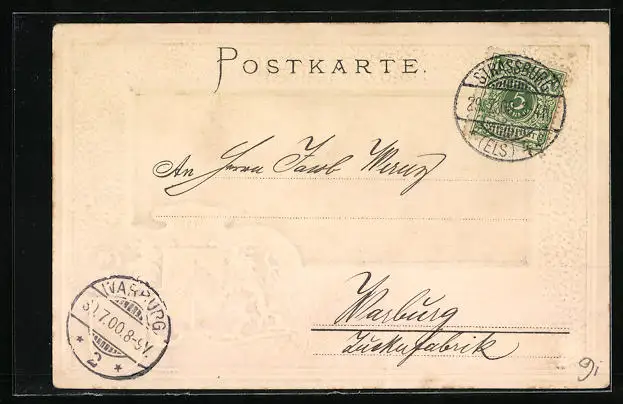 POSTKARTE.
STRASSBURG
5
(ELS)
An Herrn Jacob
WARBURG
7.00.8-9V.
* 2 *
Warburg
Zuckerfabrik